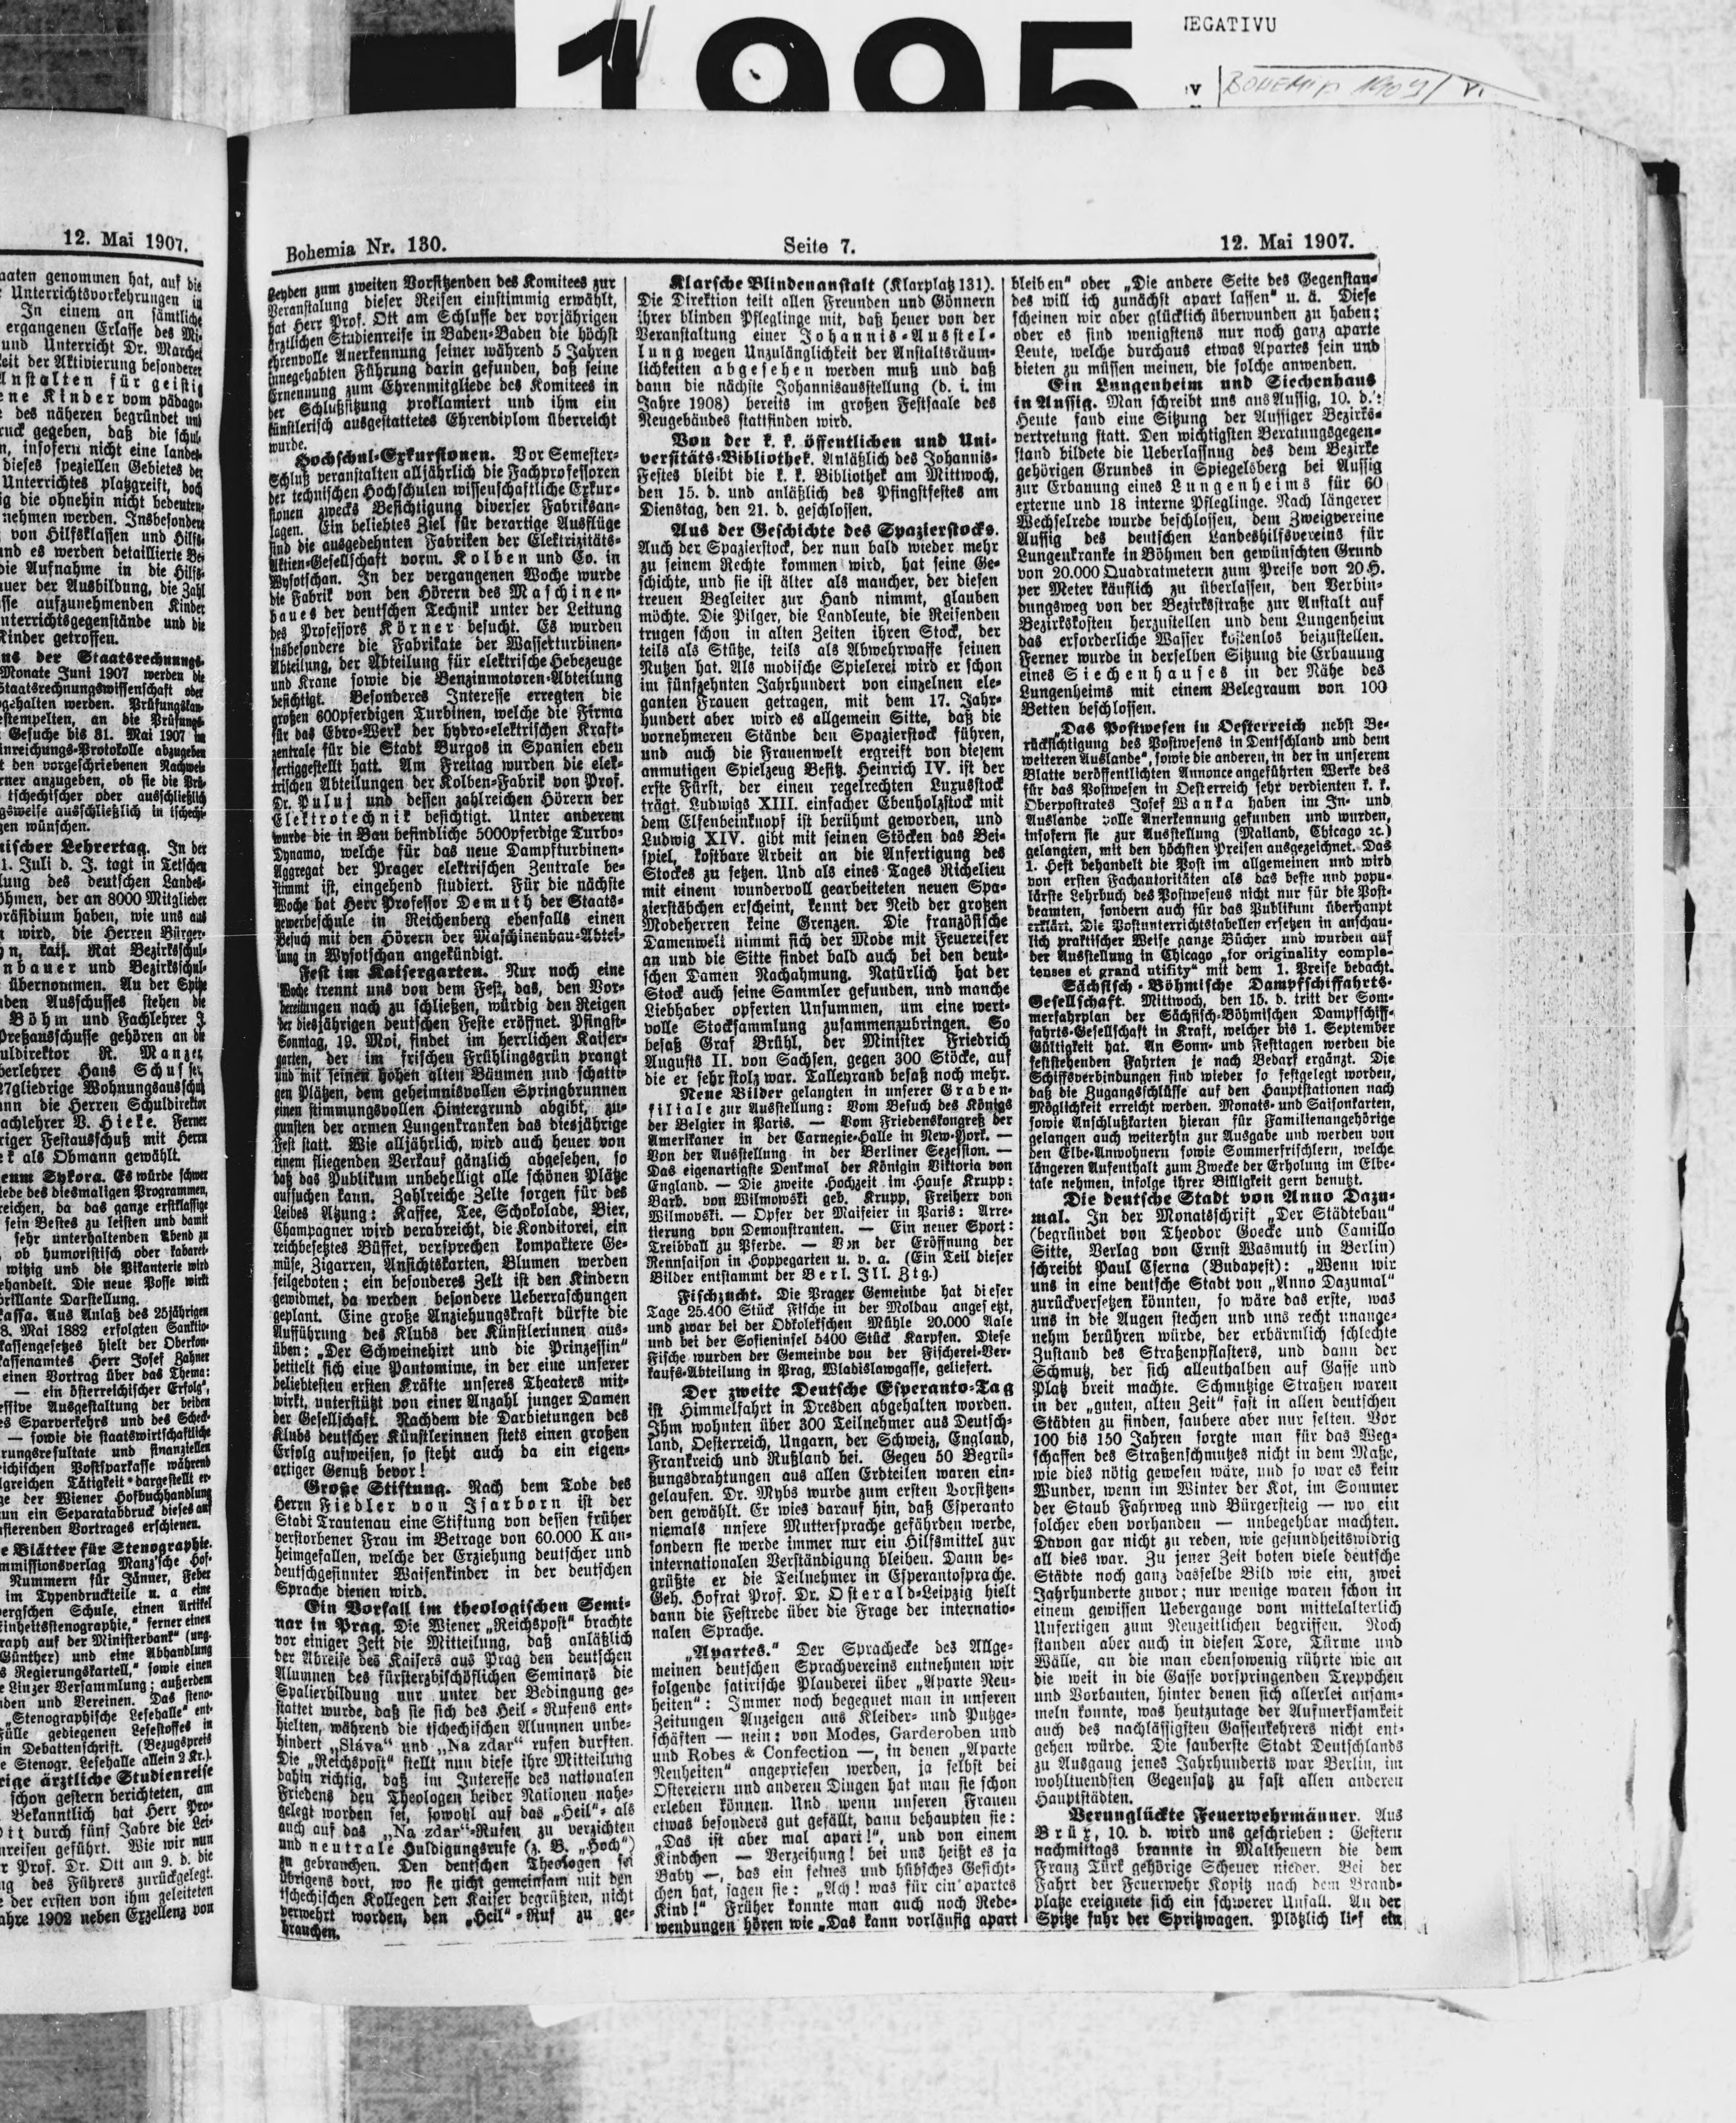 1995
NEGATIVU
BOHEMIA
12. Mai 1907.
aaten genommen hat, auf die
Unterrichtsvorkehrungen in
In einem an sämtliche
ergangenen Erlasse des Mi-
und Unterricht Dr. Marchet
eit der Aktivierung besonderer
Anstalten für geistig
ne Kinder vom pädago-
des näheren begründet und
ruck gegeben, daß die schul-
n, insofern nicht eine landes-
dieses speziellen Gebietes der
Unterrichtes platzgreift, doch
ig die ohnehin nicht bedeuten-
nehmen werden. Insbesondere
von Hilfsklassen und Hilfs-
und es werden detaillierte Be-
die Aufnahme in die Hilfs-
uer der Ausbildung, die Zahl
sse aufzunehmenden Kinder
nterrichtsgegenstände und die
Kinder getroffen.
us der Staatsrechnungs-
Monate Juni 1907 werden die
Staatsrechnungswissenschaft oder
gehalten werden. Prüfungskan-
estempelten, an die Prüfungs-
Gesuche bis 31. Mai 1907 im
inreichungs-Protokolle abzugeben
t den vorgeschriebenen Nachwei-
rner anzugeben, ob sie die Prü-
tschechischer oder ausschließlich
gsweise ausschließlich in tschechi-
gen wünschen.
nischer Lehrertag. In der
1. Juli d. J. tagt in Tetschen
lung des deutschen Landes-
öhmen, der an 8000 Mitglieder
präsidium haben, wie uns aus
t wird, die Herren Bürger-
n, kais. Rat Bezirksschul-
nbauer und Bezirksschul-
übernommen. An der Spitze
den Ausschusses stehen die
Böhm und Fachlehrer J.
Preßausschusse gehören an die
uldirektor R. Manzer,
berlehrer Hans Schuster,
27gliedrige Wohnungsausschuß
ann die Herren Schuldirektor
achlehrer V. Hieke. Ferner
riger Festausschuß mit Herrn
k als Obmann gewählt.
eum Sykora. Es würde schwer
iede des diesmaligen Programmes,
reichen, da das ganze erstklassige
sein Bestes zu leisten und damit
sehr unterhaltenden Abend zu
ob humoristisch oder kabaret-
witzig und die Pikanterie wird
ehandelt. Die neue Posse wirkt
brillante Darstellung.
kassa. Aus Anlaß des 25jährigen
8. Mai 1882 erfolgten Sanktio-
kassengesetzes hielt der Oberkon-
kassenamtes Herr Josef Zahner
einen Vortrag über das Thema:
— ein österreichischer Erfolg",
essive Ausgestaltung der beiden
es Sparverkehrs und des Scheck-
— sowie die staatswirtschaftliche
rungsresultate und finanziellen
ichischen Postsparkasse während
lgreichen Tätigkeit dargestellt er-
ge der Wiener Hofbuchhandlung
un ein Separatabdruck dieses auf
ssierenden Vortrages erschienen.
e Blätter für Stenographie.
mmissionsverlag Manz'sche Hof-
Nummern für Jänner, Feber
im Typendruckteile u. a eine
bergschen Schule, einen Artikel
Einheitsstenographie," ferner einen
raph auf der Ministerbank" (ung.
Günther) und eine Abhandlung
s Regierungskartell," sowie einen
e Linzer Versammlung; außerdem
nden und Vereinen. Das steno-
„Stenographische Lesehalle" ent-
Fülle gediegenen Lesestoffes in
in Debattenschrift. (Bezugspreis
e Stenogr. Lesehalle allein 2 Kr.).
rige ärztliche Studienreise
schon gestern berichteten, am
Bekanntlich hat Herr Pro-
Ott durch fünf Jahre die Lei-
nreisen geführt. Wie wir nun
r Prof. Dr. Ott am 9. d. die
ng des Führers zurückgelegt.
e der ersten von ihm geleiteten
ahre 1902 neben Exzellenz von
Bohemia Nr. 130.
Seite 7.
12. Mai 1907.
Leyden zum zweiten Vorsitzenden des Komitees zur
Veranstalung dieser Reisen einstimmig erwählt,
hat Herr Prof. Ott am Schlusse der vorjährigen
ärztlichen Studienreise in Baden-Baden die höchst
ehrenvolle Anerkennung seiner während 5 Jahren
innegehabten Führung darin gefunden, daß seine
Ernennung zum Ehrenmitgliede des Komitees in
der Schlußsitzung proklamiert und ihm ein
künstlerisch ausgestattetes Ehrendiplom überreicht
wurde.
Hochschul-Exkursionen. Vor Semester-
Schluß veranstalten alljährlich die Fachprofessoren
der technischen Hochschulen wissenschaftliche Exkur-
sionen zwecks Besichtigung diverser Fabriksan-
lagen. Ein beliebtes Ziel für derartige Ausflüge
sind die ausgedehnten Fabriken der Elektrizitäts-
Aktien-Gesellschaft vorm. Kolben und Co. in
Wysotschan. In der vergangenen Woche wurde
die Fabrik von den Hörern des Maschinen-
baues der deutschen Technik unter der Leitung
des Professors Körner besucht. Es wurden
insbesondere die Fabrikate der Wasserturbinen-
Abteilung, der Abteilung für elektrische Hebezeuge
und Krane sowie die Benzinmotoren-Abteilung
besichtigt. Besonderes Interesse erregten die
großen 600pferdigen Turbinen, welche die Firma
für das Ebro-Werk der hydro-elektrischen Kraft-
zentrale für die Stadt Burgos in Spanien eben
fertiggestellt hatt. Am Freitag wurden die elek-
trischen Abteilungen der Kolben-Fabrik von Prof.
Dr. Puluj und dessen zahlreichen Hörern der
Elektrotechnik besichtigt. Unter anderem
wurde die in Bau befindliche 5000pferdige Turbo-
Dynamo, welche für das neue Dampfturbinen-
Aggregat der Prager elektrischen Zentrale be-
stimmt ist, eingehend studiert. Für die nächste
Woche hat Herr Professor Demuth der Staats-
gewerbeschule in Reichenberg ebenfalls einen
Besuch mit den Hörern der Maschinenbau-Abtei-
lung in Wysotschan angekündigt.
Fest im Kaisergarten. Nur noch eine
Woche trennt uns von dem Fest, das, den Vor-
bereitungen nach zu schließen, würdig den Reigen
der diesjährigen deutschen Feste eröffnet. Pfingst-
Sonntag, 19. Moi, findet im herrlichen Kaiser-
garten, der im frischen Frühlingsgrün prangt
und mit seinen hohen alten Bäumen und schatti-
gen Plätzen, dem geheimnisvollen Springbrunnen
einen stimmungsvollen Hintergrund abgibt, zu-
gunsten der armen Lungenkranken das diesjährige
Fest statt. Wie alljährlich, wird auch heuer von
einem fliegenden Verkauf gänzlich abgesehen, so
daß das Publikum unbehelligt alle schönen Plätze
aufsuchen kann. Zahlreiche Zelte sorgen für des
Leibes Atzung: Kaffee, Tee, Schokolade, Bier,
Champagner wird verabreicht, die Konditorei, ein
reichbesetztes Büffet, versprechen kompaktere Ge-
müse, Zigarren, Ansichtskarten, Blumen werden
feilgeboten; ein besonderes Zelt ist den Kindern
gewidmet, da werden besondere Ueberraschungen
geplant. Eine große Anziehungskraft dürfte die
Aufführung des Klubs der Künstlerinnen aus-
üben: „Der Schweinehirt und die Prinzessin"
betitelt sich eine Pantomime, in der eine unserer
beliebtesten ersten Kräfte unseres Theaters mit-
wirkt, unterstützt von einer Anzahl junger Damen
der Gesellschaft. Nachdem die Darbietungen des
Klubs deutscher Künstlerinnen stets einen großen
Erfolg aufweisen, so steht auch da ein eigen-
artiger Genuß bevor!
Große Stiftung. Nach dem Tode des
Herrn Fiedler von Isarborn ist der
Stadt Trautenau eine Stiftung von dessen früher
verstorbener Frau im Betrage von 60.000 K an-
heimgefallen, welche der Erziehung deutscher und
deutschgesinnter Waisenkinder in der deutschen
Sprache dienen wird.
Ein Vorfall im theologischen Semi-
nar in Prag. Die Wiener „Reichspost" brachte
vor einiger Zeit die Mitteilung, daß anläßlich
der Abreise des Kaisers aus Prag den deutschen
Alumnen des fürsterzbischöflichen Seminars die
Spalierbildung nur unter der Bedingung ge-
stattet wurde, daß sie sich des Heil-Rufens ent-
hielten, während die tschechischen Alumnen unbe-
hindert „Sláva" und „Na zdar" rufen durften.
Die „Reichspost" stellt nun diese ihre Mitteilung
dahin richtig, daß im Interesse des nationalen
Friedens den Theologen beider Nationen nahe-
gelegt worden sei, sowohl auf das „Heil"- als
auch auf das „Na zdar"-Rufen zu verzichten
und neutrale Huldigungsrufe (z. B. „Hoch")
zu gebrauchen. Den deutschen Theologen sei
übrigens dort, wo sie nicht gemeinsam mit den
tschechischen Kollegen den Kaiser begrüßten, nicht
verwehrt worden, den „Heil"-Ruf zu ge-
brauchen.
Klarsche Blindenanstalt (Klarplatz 131).
Die Direktion teilt allen Freunden und Gönnern
ihrer blinden Pfleglinge mit, daß heuer von der
Veranstaltung einer Johannis-Ausstel-
lung wegen Unzulänglichkeit der Anstaltsräum-
lichkeiten abgesehen werden muß und daß
dann die nächste Johannisausstellung (d. i. im
Jahre 1908) bereits im großen Festsaale des
Neugebäudes stattfinden wird.
Von der k. k. öffentlichen und Uni-
versitäts-Bibliothek. Anläßlich des Johannis-
Festes bleibt die k. k. Bibliothek am Mittwoch,
den 15. d. und anläßlich des Pfingstfestes am
Dienstag, den 21. d. geschlossen.
Aus der Geschichte des Spazierstocks.
Auch der Spazierstock, der nun bald wieder mehr
zu seinem Rechte kommen wird, hat seine Ge-
schichte, und sie ist älter als mancher, der diesen
treuen Begleiter zur Hand nimmt, glauben
möchte. Die Pilger, die Landleute, die Reisenden
trugen schon in alten Zeiten ihren Stock, der
teils als Stütze, teils als Abwehrwaffe seinen
Nutzen hat. Als modische Spielerei wird er schon
im fünfzehnten Jahrhundert von einzelnen ele-
ganten Frauen getragen, mit dem 17. Jahr-
hundert aber wird es allgemein Sitte, daß die
vornehmeren Stände den Spazierstock führen,
und auch die Frauenwelt ergreift von diesem
anmutigen Spielzeug Besitz. Heinrich IV. ist der
erste Fürst, der einen regelrechten Luxusstock
trägt. Ludwigs XIII. einfacher Ebenholzstock mit
dem Elfenbeinknopf ist berühmt geworden, und
Ludwig XIV. gibt mit seinen Stöcken das Bei-
spiel, kostbare Arbeit an die Anfertigung des
Stockes zu setzen. Und als eines Tages Richelieu
mit einem wundervoll gearbeiteten neuen Spa-
zierstäbchen erscheint, kennt der Neid der großen
Modeherren keine Grenzen. Die französische
Damenwelt nimmt sich der Mode mit Feuereifer
an und die Sitte findet bald auch bei den deut-
schen Damen Nachahmung. Natürlich hat der
Stock auch seine Sammler gefunden, und manche
Liebhaber opferten Unsummen, um eine wert-
volle Stocksammlung zusammenzubringen. So
besaß Graf Brühl, der Minister Friedrich
Augusts II. von Sachsen, gegen 300 Stöcke, auf
die er sehr stolz war. Talleyrand besaß noch mehr.
Neue Bilder gelangten in unserer Graben-
filiale zur Ausstellung: Vom Besuch des Königs
der Belgier in Paris. — Vom Friedenskongreß der
Amerikaner in der Carnegie-Halle in New-York. —
Von der Ausstellung in der Berliner Sezession. —
Das eigenartigste Denkmal der Königin Viktoria von
England. — Die zweite Hochzeit im Hause Krupp:
Barb. von Wilmowski geb. Krupp, Freiherr von
Wilmovski. — Opfer der Maifeier in Paris: Arre-
tierung von Demonstranten. — Ein neuer Sport:
Treibball zu Pferde. — Von der Eröffnung der
Rennsaison in Hoppegarten u. v. a. (Ein Teil dieser
Bilder entstammt der Berl. Ill. Ztg.)
Fischzucht. Die Prager Gemeinde hat dieser
Tage 25.400 Stück Fische in der Moldau angesetzt,
und zwar bei der Odkolekschen Mühle 20.000 Aale
und bei der Sofieninsel 5400 Stück Karpfen. Diese
Fische wurden der Gemeinde von der Fischerei-Ver-
kaufs-Abteilung in Prag, Wladislawgasse, geliefert.
Der zweite Deutsche Esperanto-Tag
ist Himmelfahrt in Dresden abgehalten worden.
Ihm wohnten über 300 Teilnehmer aus Deutsch-
land, Oesterreich, Ungarn, der Schweiz, England,
Frankreich und Rußland bei. Gegen 50 Begrü-
ßungsdrahtungen aus allen Erdteilen waren ein-
gelaufen. Dr. Mybs wurde zum ersten Vorsitzen-
den gewählt. Er wies darauf hin, daß Esperanto
niemals unsere Muttersprache gefährden werde,
sondern sie werde immer nur ein Hilfsmittel zur
internationalen Verständigung bleiben. Dann be-
grüßte er die Teilnehmer in Esperantosprache.
Geh. Hofrat Prof. Dr. Osterald-Leipzig hielt
dann die Festrede über die Frage der internatio-
nalen Sprache.
„Apartes." Der Sprachecke des Allge-
meinen deutschen Sprachvereins entnehmen wir
folgende satirische Plauderei über „Aparte Neu-
heiten": Immer noch begegnet man in unseren
Zeitungen Anzeigen aus Kleider- und Putzge-
schäften — nein: von Modes, Garderoben und
und Robes & Confection —, in denen „Aparte
Neuheiten" angepriesen werden, ja selbst bei
Ostereiern und anderen Dingen hat man sie schon
erleben können. Und wenn unseren Frauen
etwas besonders gut gefällt, dann behaupten sie:
„Das ist aber mal apart!", und von einem
Kindchen — Verzeihung! bei uns heißt es ja
Baby —, das ein feines und hübsches Gesicht-
chen hat, sagen sie: „Ach! was für ein apartes
Kind!" Früher konnte man auch noch Rede-
wendungen hören wie „Das kann vorläufig apart
bleiben" oder „Die andere Seite des Gegenstan-
des will ich zunächst apart lassen" u. ä. Diese
scheinen wir aber glücklich überwunden zu haben;
oder es sind wenigstens nur noch ganz aparte
Leute, welche durchaus etwas Apartes sein und
bieten zu müssen meinen, die solche anwenden.
Ein Lungenheim und Siechenhaus
in Aussig. Man schreibt uns aus Aussig, 10. d.:
Heute fand eine Sitzung der Aussiger Bezirks-
vertretung statt. Den wichtigsten Beratungsgegen-
stand bildete die Ueberlassung des dem Bezirke
gehörigen Grundes in Spiegelsberg bei Aussig
zur Erbauung eines Lungenheims für 60
externe und 18 interne Pfleglinge. Nach längerer
Wechselrede wurde beschlossen, dem Zweigvereine
Aussig des deutschen Landeshilfsvereins für
Lungenkranke in Böhmen den gewünschten Grund
von 20.000 Quadratmetern zum Preise von 20 H.
per Meter käuflich zu überlassen, den Verbin-
dungsweg von der Bezirksstraße zur Anstalt auf
Bezirkskosten herzustellen und dem Lungenheim
das erforderliche Wasser kostenlos beizustellen.
Ferner wurde in derselben Sitzung die Erbauung
eines Siechenhauses in der Nähe des
Lungenheims mit einem Belegraum von 100
Betten beschlossen.
„Das Postwesen in Oesterreich nebst Be-
rücksichtigung des Postwesens in Deutschland und dem
weiteren Auslande", sowie die anderen, in der in unserem
Blatte veröffentlichten Annonce angeführten Werke des
für das Postwesen in Oesterreich sehr verdienten k. k.
Oberpostrates Josef Wanka haben im In- und
Auslande volle Anerkennung gefunden und wurden,
insofern sie zur Ausstellung (Mailand, Chicago 2c.)
gelangten, mit den höchsten Preisen ausgezeichnet. Das
1. Heft behandelt die Post im allgemeinen und wird
von ersten Fachautoritäten als das beste und popu-
lärste Lehrbuch des Postwesens nicht nur für die Post-
beamten, sondern auch für das Publikum überhaupt
erklärt. Die Postunterrichtstabellen ersetzen in anschau-
lich praktischer Weise ganze Bücher und wurden auf
der Ausstellung in Chicago „for originality comple-
tenses et grand utifity" mit dem 1. Preise bedacht.
Sächsisch-Böhmische Dampfschiffahrts-
Gesellschaft. Mittwoch, den 15. d. tritt der Som-
merfahrplan der Sächsisch-Böhmischen Dampfschiff-
fahrts-Gesellschaft in Kraft, welcher bis 1. September
Gültigkeit hat. An Sonn- und Festtagen werden die
feststehenden Fahrten je nach Bedarf ergänzt. Die
Schiffsverbindungen sind wieder so festgelegt worden,
daß die Zugangschlüsse auf den Hauptstationen nach
Möglichkeit erreicht werden. Monats- und Saisonkarten,
sowie Anschlußkarten hieran für Familienangehörige
gelangen auch weiterhin zur Ausgabe und werden von
den Elbe-Anwohnern sowie Sommerfrischlern, welche
längeren Aufenthalt zum Zwecke der Erholung im Elbe-
tale nehmen, infolge ihrer Billigkeit gern benutzt.
Die deutsche Stadt von Anno Dazu-
mal. In der Monatsschrift „Der Städtebau"
(begründet von Theodor Goecke und Camillo
Sitte, Verlag von Ernst Wasmuth in Berlin)
schreibt Paul Cserna (Budapest): „Wenn wir
uns in eine deutsche Stadt von „Anno Dazumal"
zurückversetzen könnten, so wäre das erste, was
uns in die Augen stechen und uns recht unange-
nehm berühren würde, der erbärmlich schlechte
Zustand des Straßenpflasters, und dann der
Schmutz, der sich allenthalben auf Gasse und
Platz breit machte. Schmutzige Straßen waren
in der „guten, alten Zeit" fast in allen deutschen
Städten zu finden, saubere aber nur selten. Vor
100 bis 150 Jahren sorgte man für das Weg-
schaffen des Straßenschmutzes nicht in dem Maße,
wie dies nötig gewesen wäre, und so war es kein
Wunder, wenn im Winter der Kot, im Sommer
der Staub Fahrweg und Bürgersteig — wo ein
solcher eben vorhanden — unbegehbar machten.
Davon gar nicht zu reden, wie gesundheitswidrig
all dies war. Zu jener Zeit boten viele deutsche
Städte noch ganz dasselbe Bild wie ein, zwei
Jahrhunderte zuvor; nur wenige waren schon in
einem gewissen Uebergange vom mittelalterlich
Unfertigen zum Neuzeitlichen begriffen. Noch
standen aber auch in diesen Tore, Türme und
Wälle, an die man ebensowenig rührte wie an
die weit in die Gasse vorspringenden Treppchen
und Vorbauten, hinter denen sich allerlei ansam-
meln konnte, was heutzutage der Aufmerksamkeit
auch des nachlässigsten Gassenkehrers nicht ent-
gehen würde. Die sauberste Stadt Deutschlands
zu Ausgang jenes Jahrhunderts war Berlin, im
wohltuendsten Gegensatz zu fast allen anderen
Hauptstädten.
Verunglückte Feuerwehrmänner. Aus
Brüx, 10. d. wird uns geschrieben: Gestern
nachmittags brannte in Maltheuern die dem
Franz Türk gehörige Scheuer nieder. Bei der
Fahrt der Feuerwehr Kopitz nach dem Brand-
platze ereignete sich ein schwerer Unfall. An der
Spitze fuhr der Spritzwagen. Plötzlich lief ein